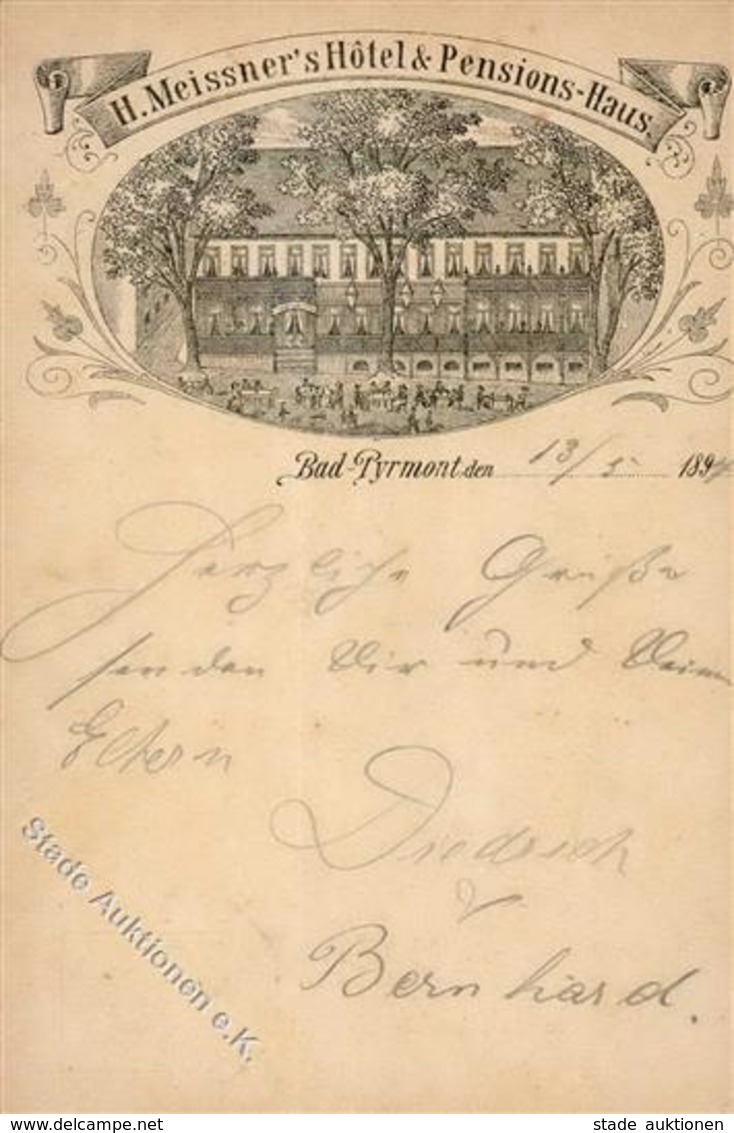 H. Meissner's Hôtel & Pensions-Haus.
Bad-Pyrmont den 13/5 1894
Herzliche Grüße
senden Dir und Deinen
Eltern
Diedrich
&
Bernhard.
Stade Auktionen e.K.
www.delcampe.net stade_auktionen